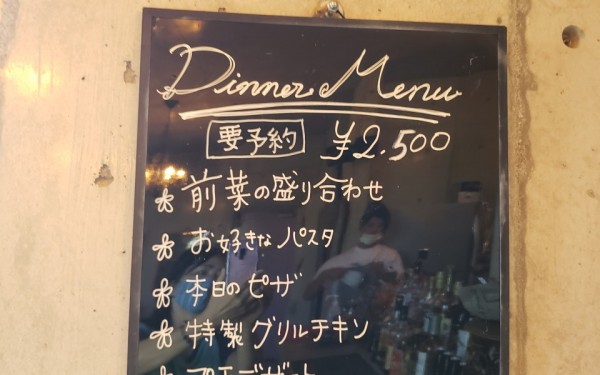 Dinner Menu
要予約 ¥2.500
前菜の盛り合わせ
お好きなパスタ
本日のピザ
特製グリルチキン